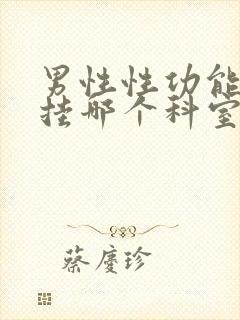 男性性功能
挂哪个科室
蔡廖珍